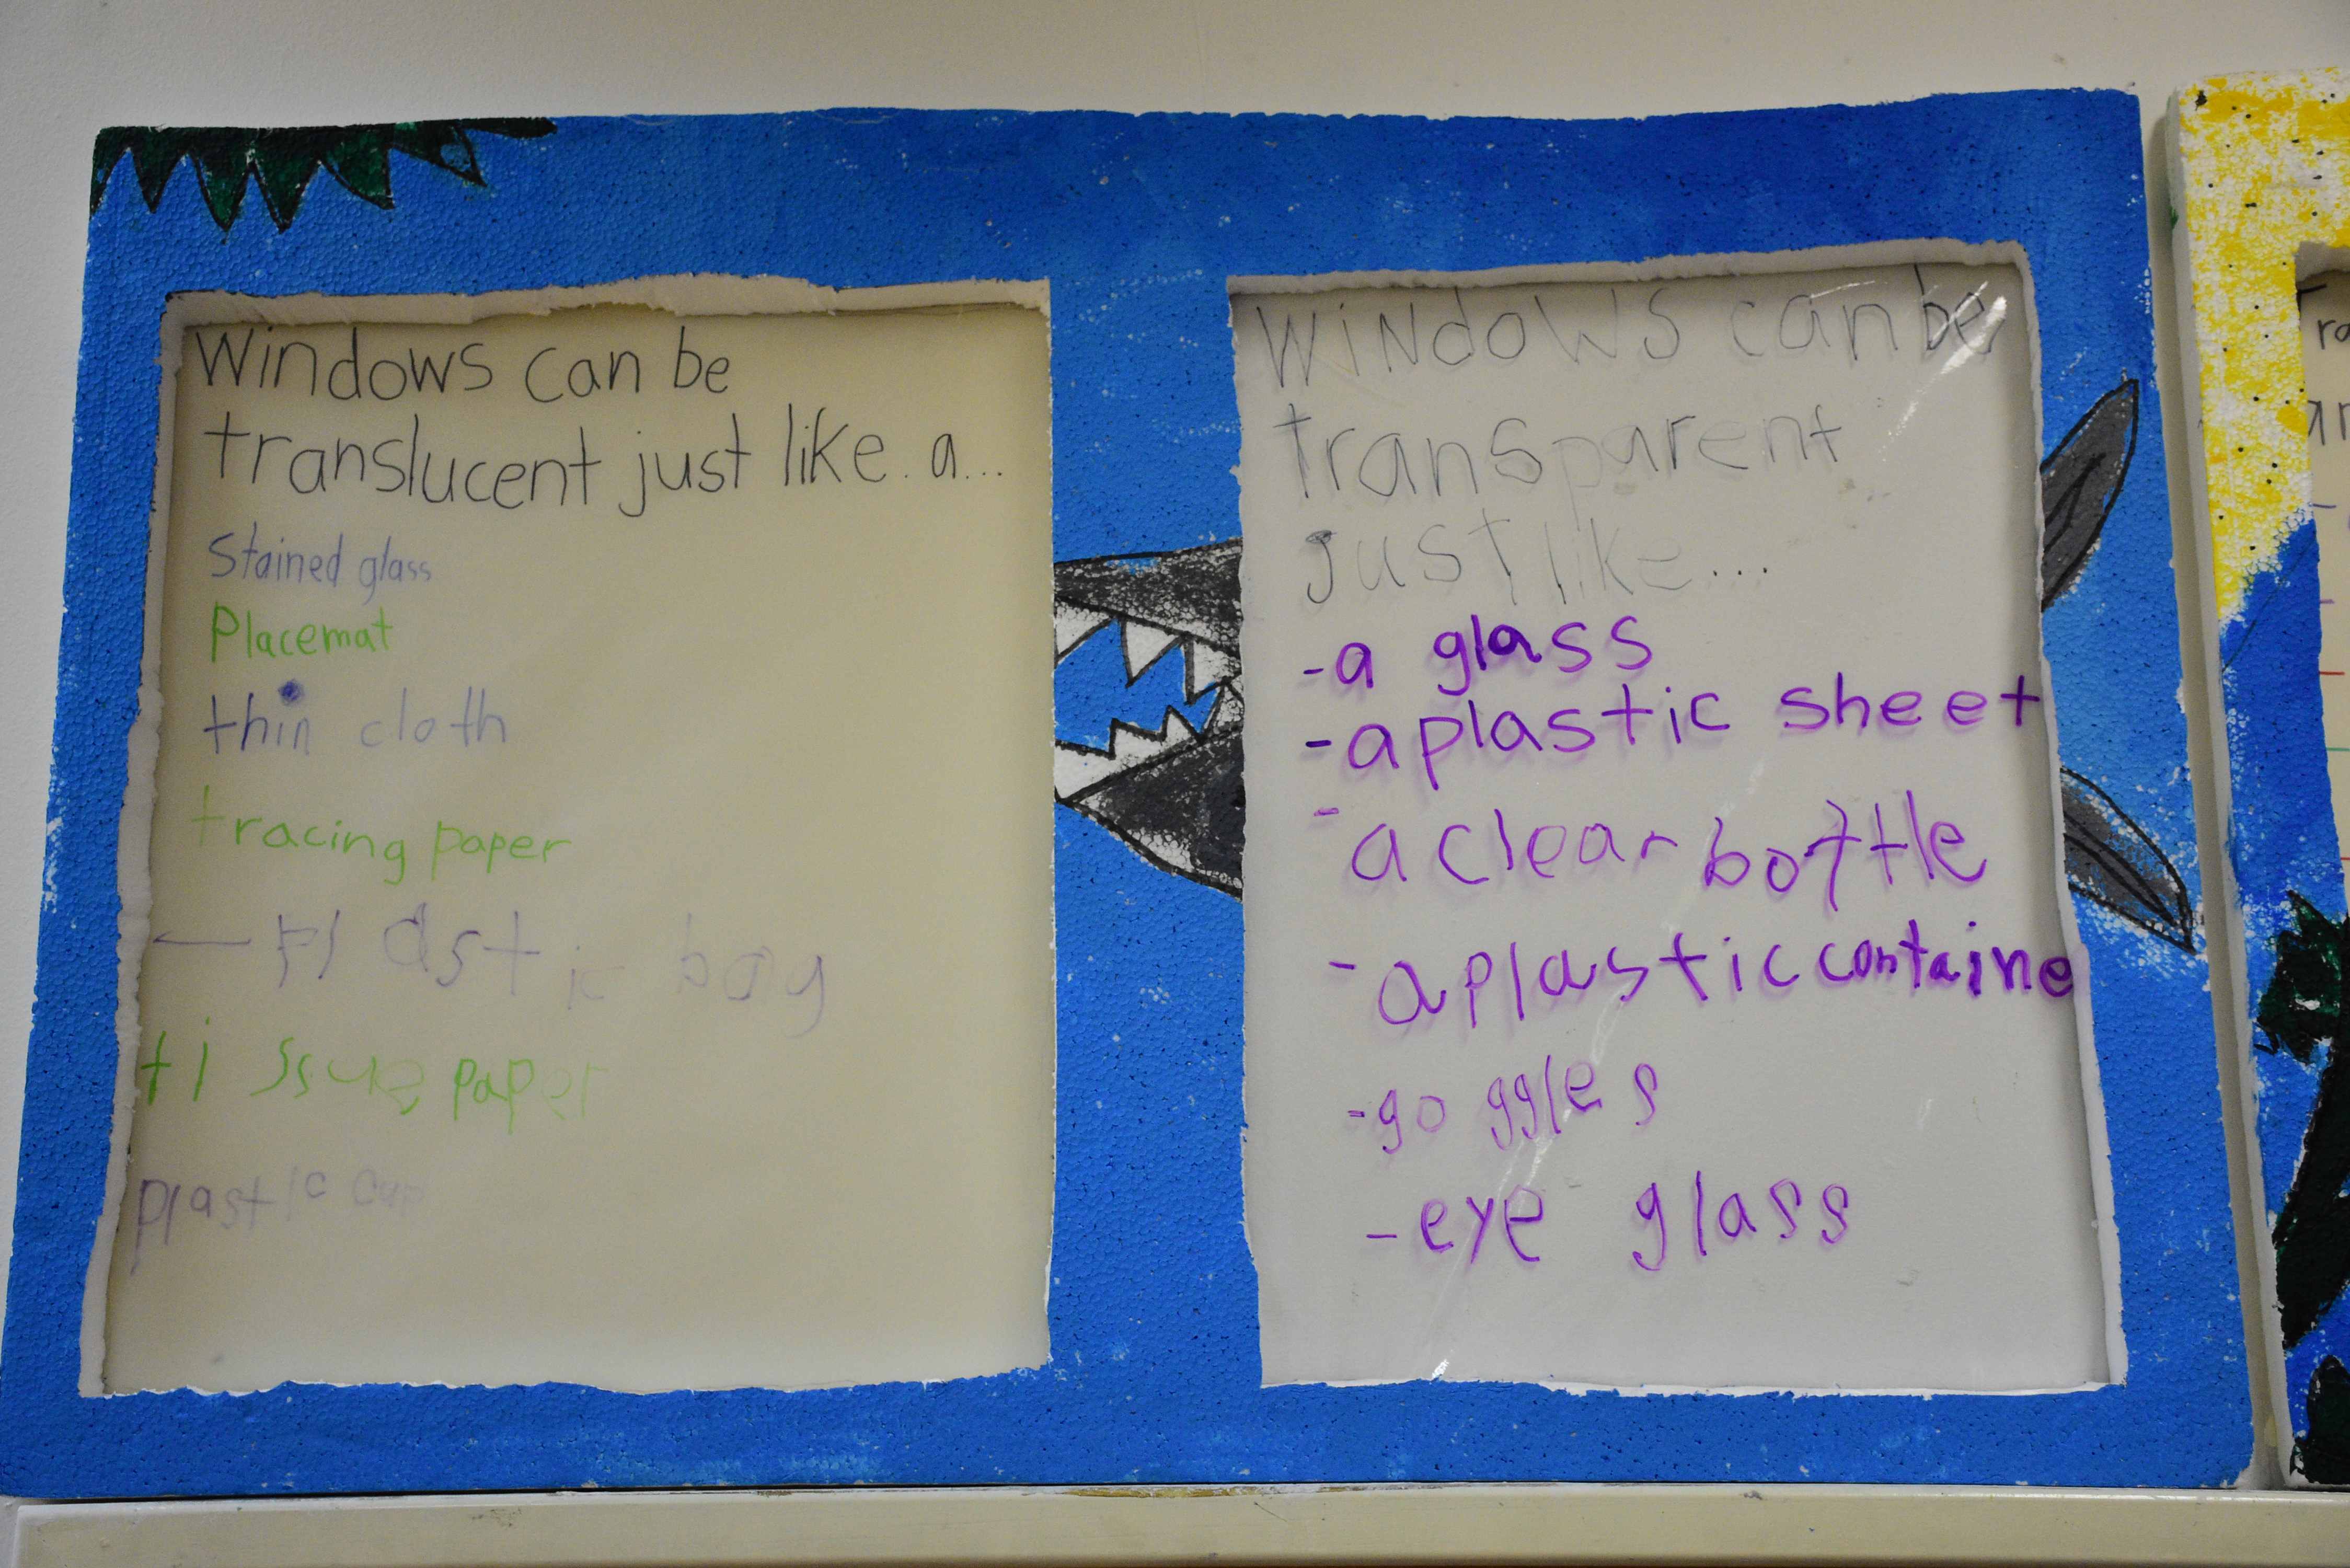 Windows can be
translucent just like a...
Stained glass
Placemat
thin cloth
tracing paper
— Plastic bag
tissue paper
plastic cup
WiNdoWS can be
transparent
just like...
-a glass
-a plastic sheet
-a clear bottle
-a plastic containe
-goggles
-eye glass